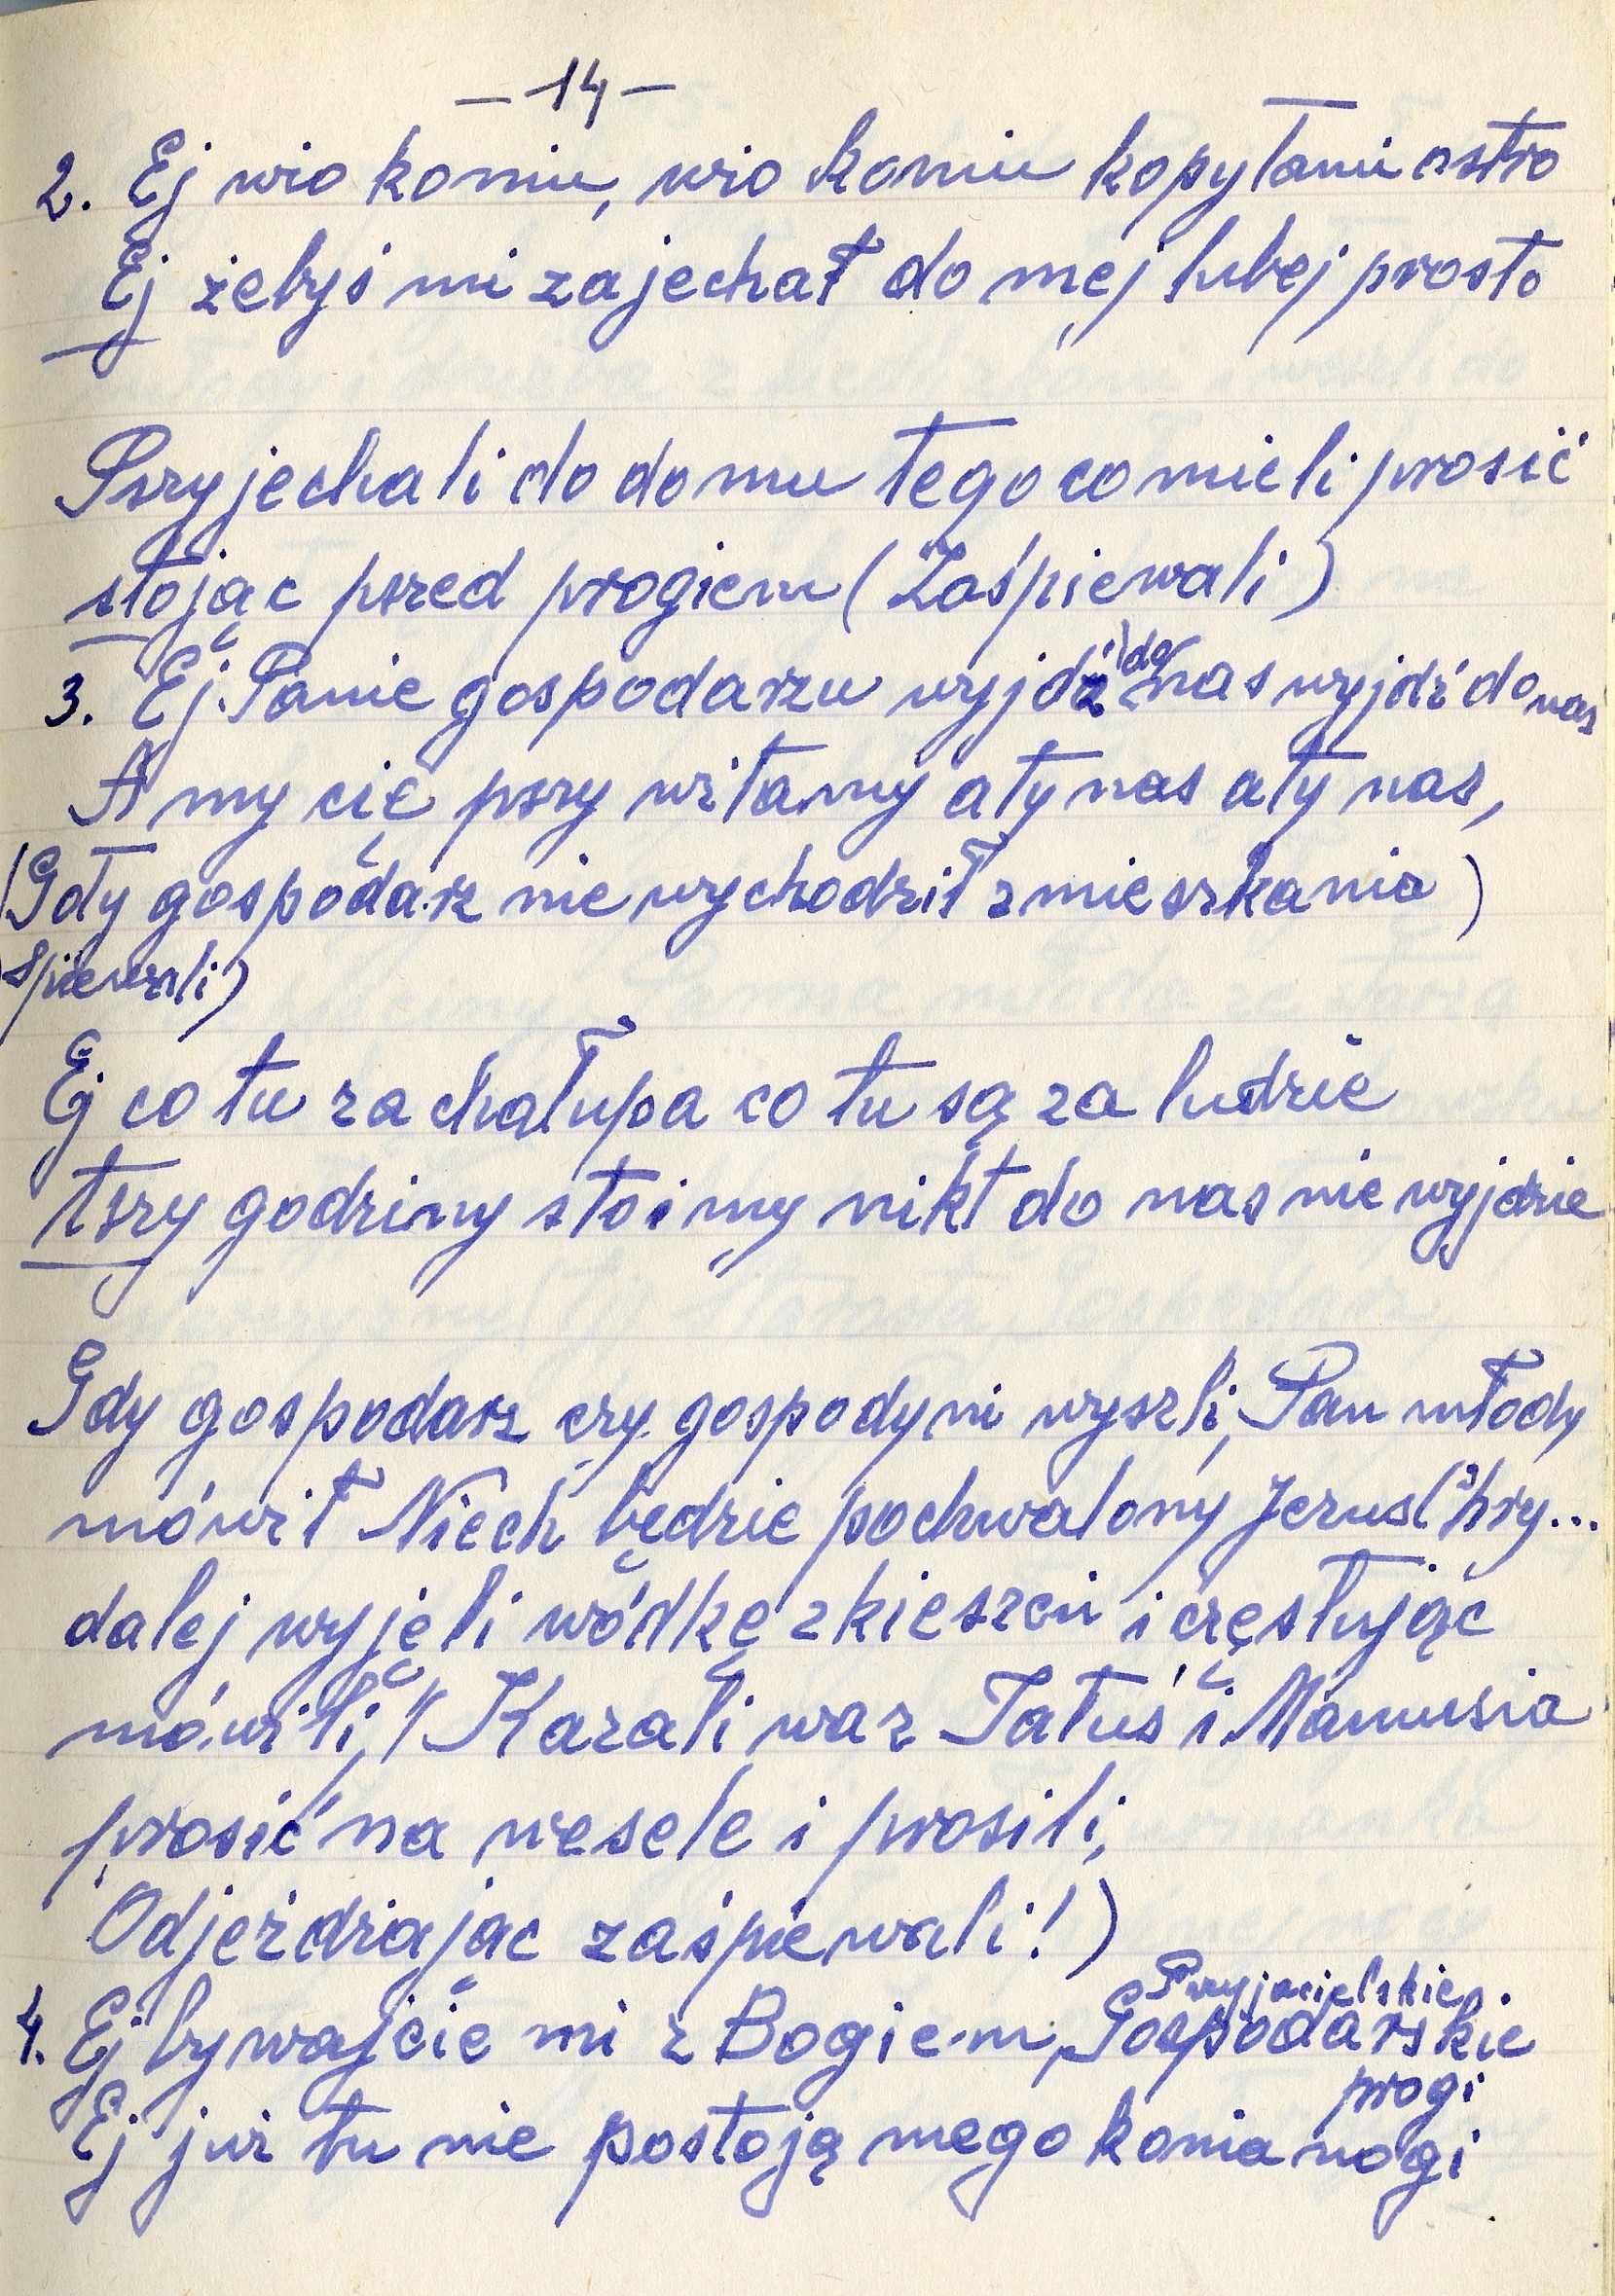 – 14 –
2. Ej wio koniu, wio koniu kopytami ostro
Ej żebyś mi zajechał do mej lubej prosto
Przyjechali do domu tego co mieli prosić
stojąc przed progiem (Zaśpiewali)
3. Ej Panie gospodarzu wyjdź do nas wyjdź do nas
A my cię przy witamy a ty nas a ty nas,
(Gdy gospodarz nie wychodził z mieszkania)
śpiewali)
Ej co tu za chałupa co tu są za ludzie
trzy godziny stoimy nikt do nas nie wyjdzie
Gdy gospodarz czy gospodyni wyszli, Pan młody
mówił Niech będzie pochwalony Jezus Chry...
dalej wyjęli wódkę z kieszeni i częstując
mówili, Kazali waz Tatuś i Mamusia
prosić na wesele i prosili,
Odjeżdzając zaśpiewali!)
Przyjacielskie
4. Ej bywajcie mi z Bogiem, Gospodarskie
progi
Ej już tu nie postoją mego konia nogi